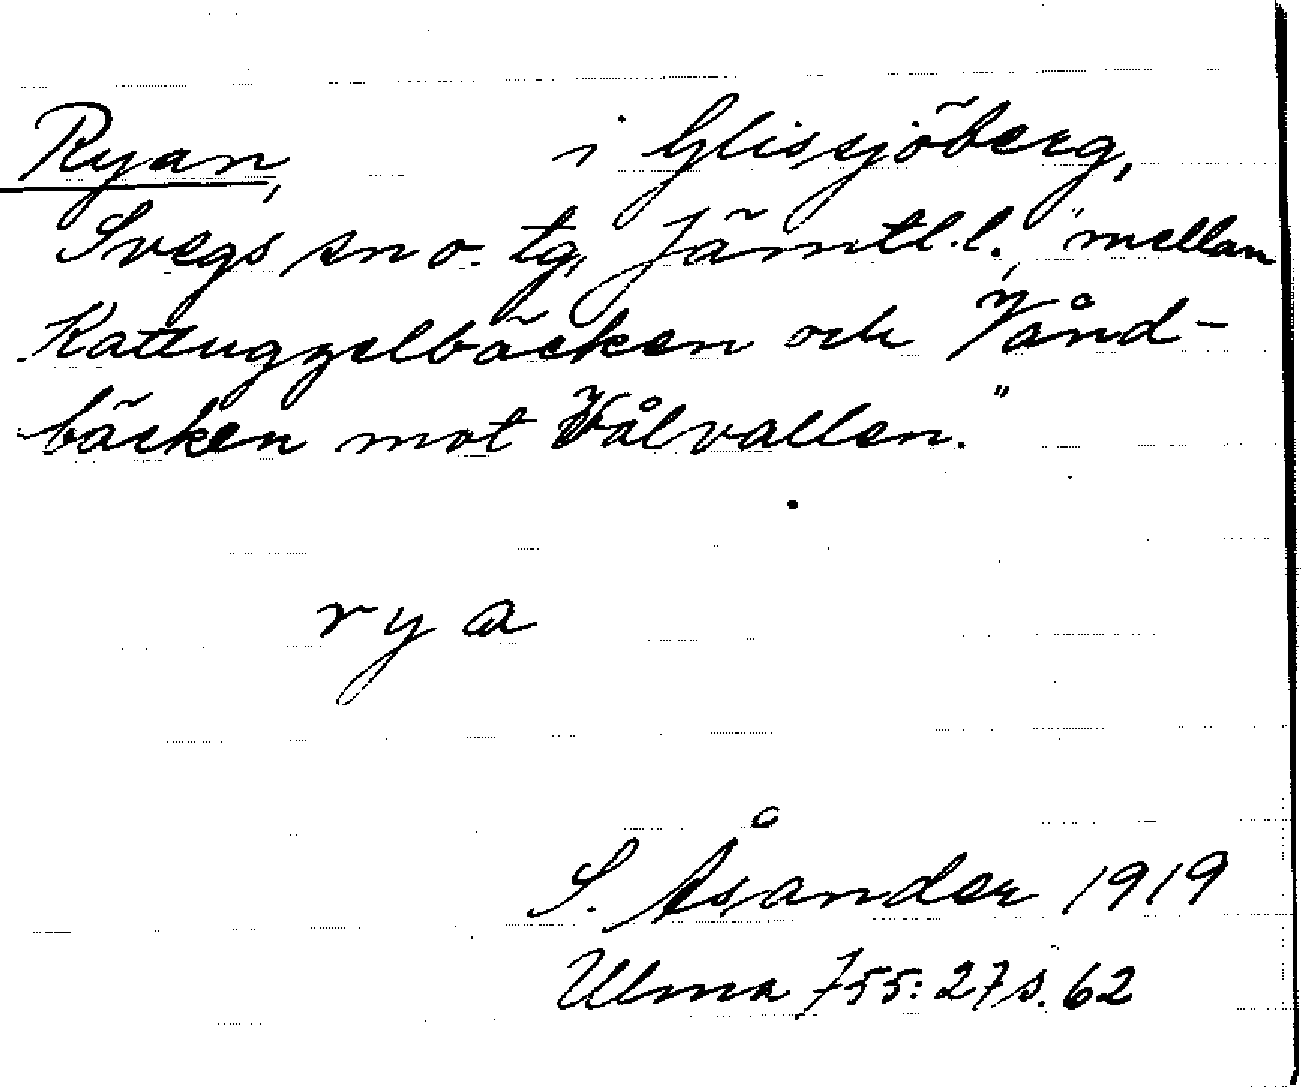 Ryan, i Glissjöberg,
Svegs sn o. tg, Jämtl. l., "mellan
Kattuggelbäcken och Vånd-
bäcken mot Vålvallen."
rya
S. Åsander 1919
Ulma 755:27 s. 62